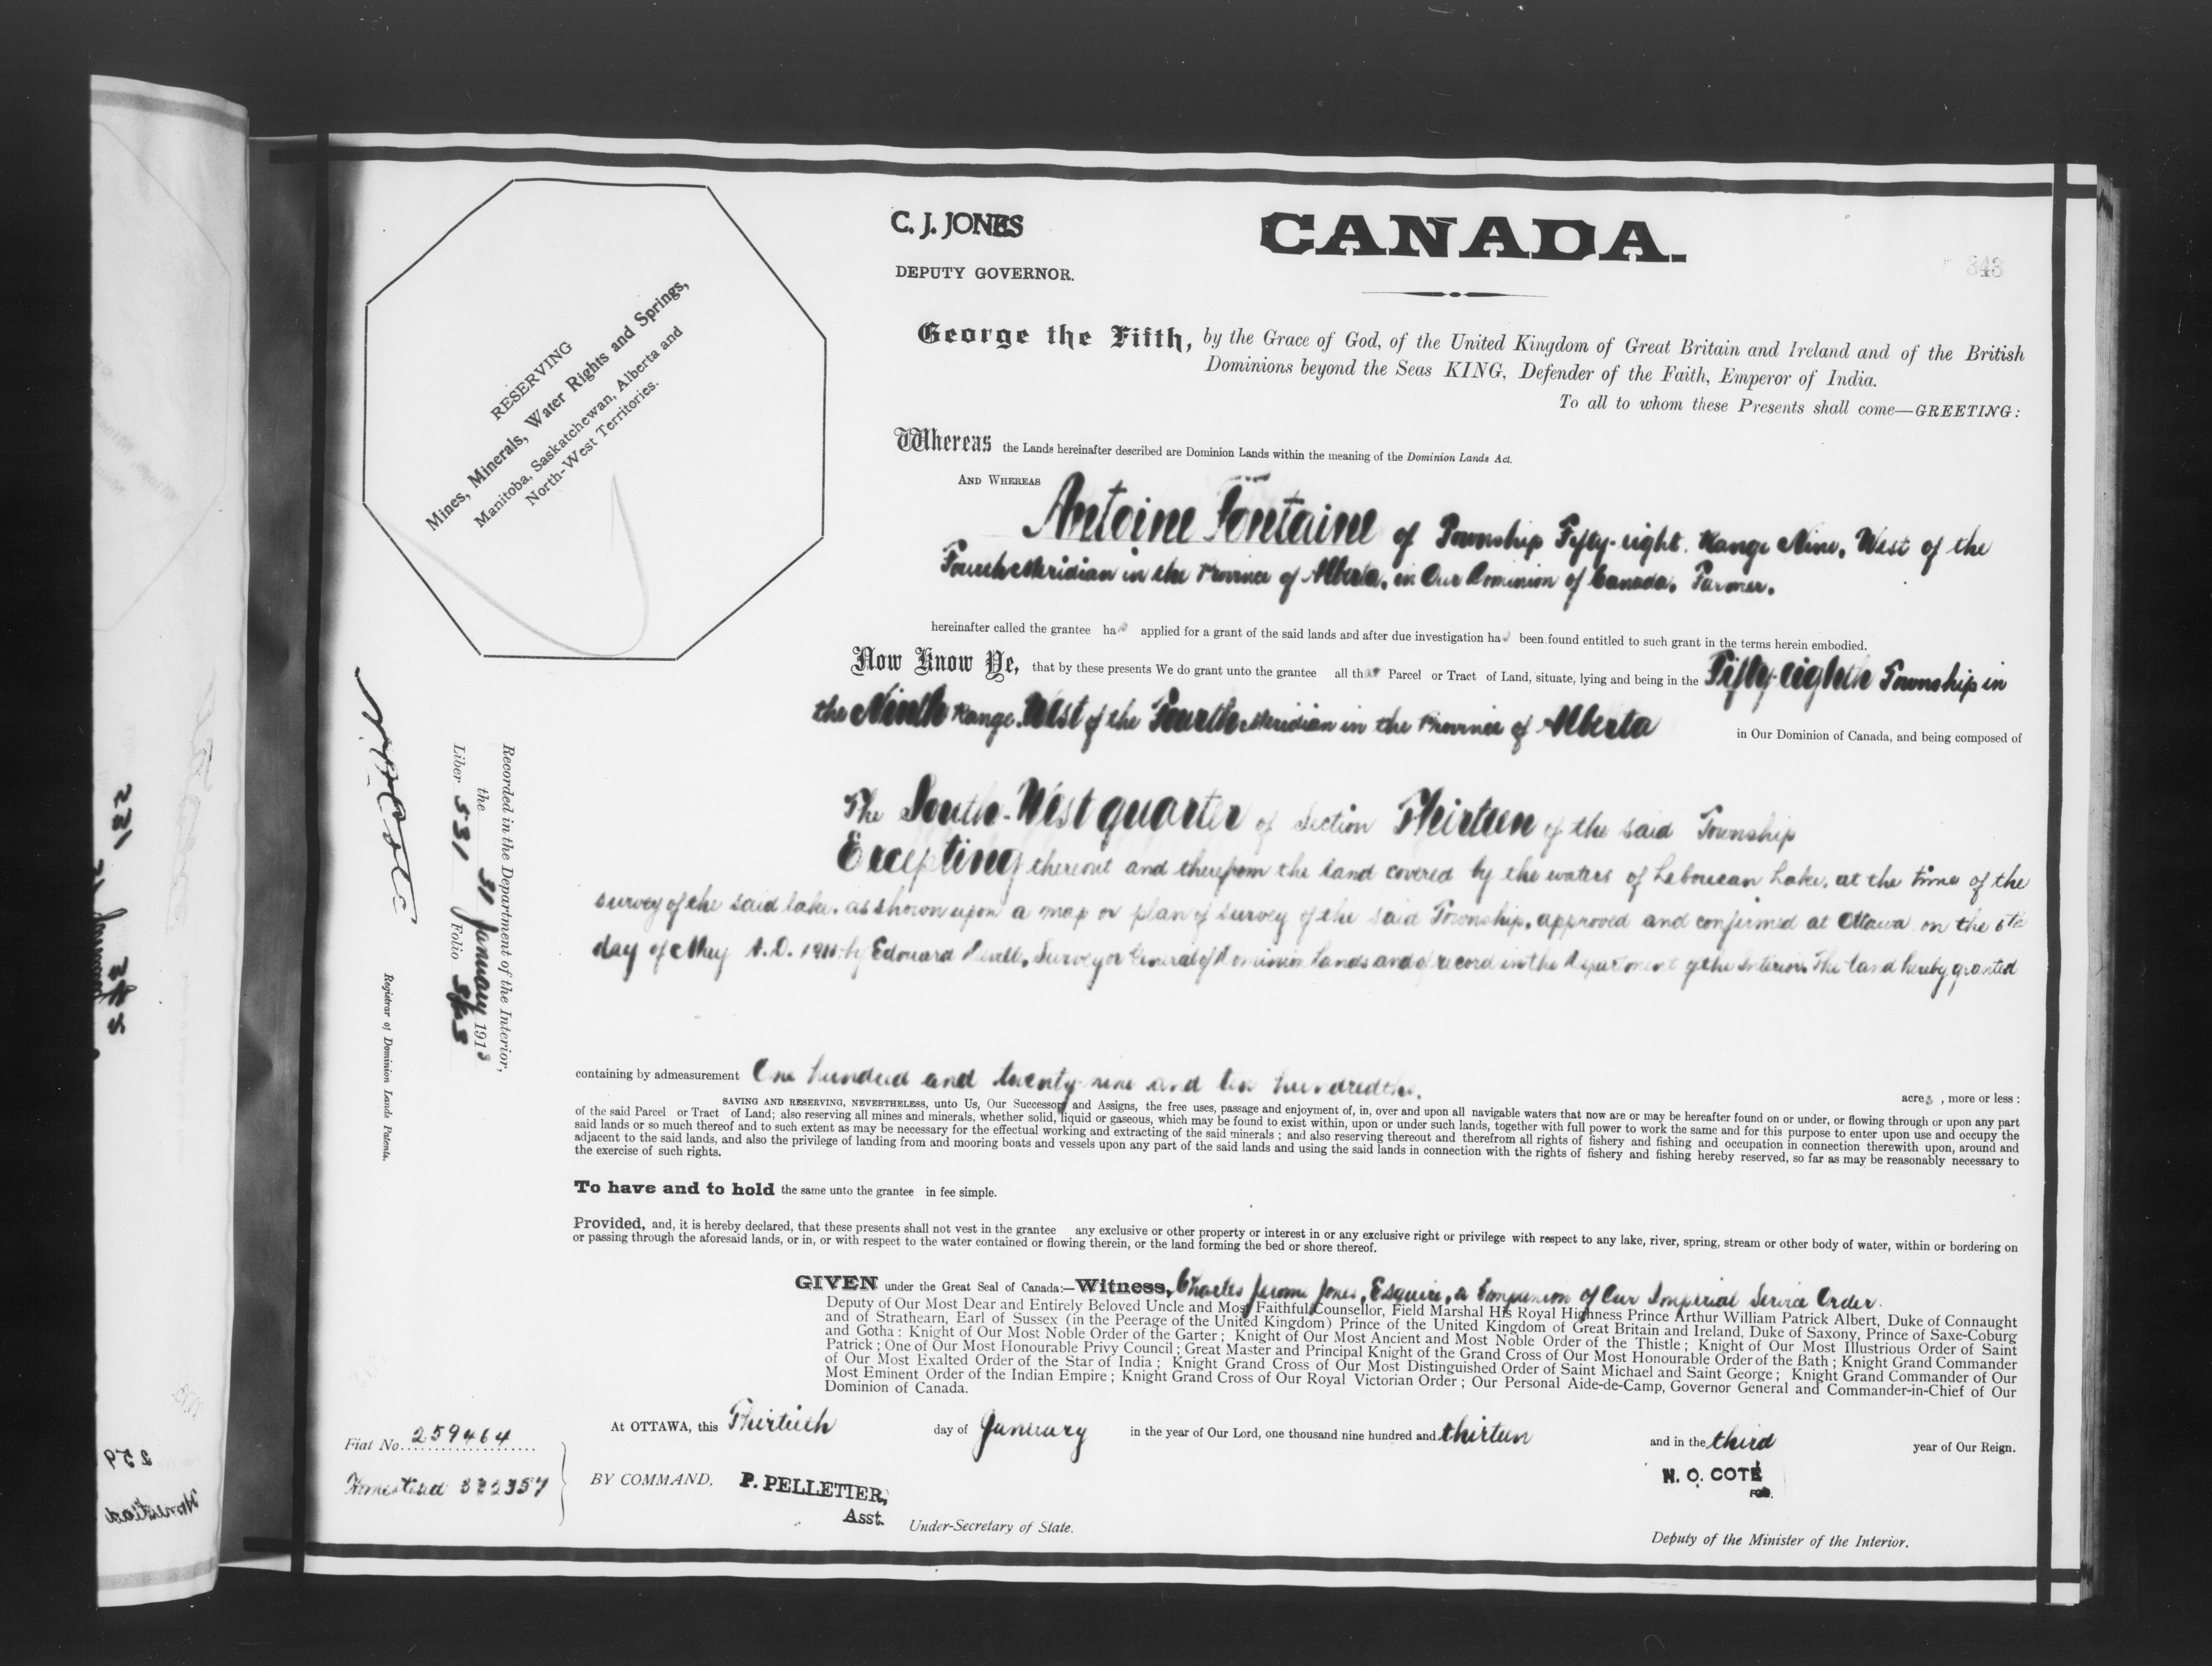 C. J. JONES
DEPUTY GOVERNOR.
CANADA.
343
RESERVING
Mines, Minerals, Water Rights and Springs,
Manitoba, Saskatchewan, Alberta and
North-West Territories.
George the Fifth, by the Grace of God, of the United Kingdom of Great Britain and Ireland and of the British
Dominions beyond the Seas KING, Defender of the Faith, Emperor of India.
To all to whom these Presents shall come—GREETING:
Whereas the Lands hereinafter described are Dominion Lands within the meaning of the Dominion Lands Act.
AND WHEREAS
Antoine Fontaine of Township Fifty-eight. Range Nine, West of the
Fourth Meridian in the Province of Alberta, in Our Dominion of Canada. Farmer.
hereinafter called the grantee has applied for a grant of the said lands and after due investigation has been found entitled to such grant in the terms herein embodied.
Now Know Ye, that by these presents We do grant unto the grantee all that Parcel or Tract of Land, situate, lying and being in the Fifty-eighth Township in
the Ninth Range West of the Fourth Meridian in the Province of Alberta in Our Dominion of Canada, and being composed of
The South-West quarter of Section Thirteen of the said Township
Excepting thereout and therefrom the land covered by the waters of Leboucan Lake, at the time of the
survey of the said lake, as shown upon a map or plan of survey of the said Township, approved and confirmed at Ottawa on the 6th
day of May A.D. by Edouard Deville, Surveyor General of Dominion Lands and of record in the Department of the Interior. The land hereby granted
containing by admeasurement One hundred and twenty-nine and ten hundredths. acres, more or less:
SAVING AND RESERVING, NEVERTHELESS, unto Us, Our Successors and Assigns, the free uses, passage and enjoyment of, in, over and upon all navigable waters that now are or may be hereafter found on or under, or flowing through or upon any part
of the said Parcel or Tract of Land; also reserving all mines and minerals, whether solid, liquid or gaseous, which may be found to exist within, upon or under such lands, together with full power to work the same and for this purpose to enter upon use and occupy the
said lands or so much thereof and to such extent as may be necessary for the effectual working and extracting of the said minerals; and also reserving thereout and therefrom all rights of fishery and fishing and occupation in connection therewith upon, around and
adjacent to the said lands, and also the privilege of landing from and mooring boats and vessels upon any part of the said lands and using the said lands in connection with the rights of fishery and fishing hereby reserved, so far as may be reasonably necessary to
the exercise of such rights.
To have and to hold the same unto the grantee in fee simple.
Provided, and, it is hereby declared, that these presents shall not vest in the grantee any exclusive or other property or interest in or any exclusive right or privilege with respect to any lake, river, spring, stream or other body of water, within or bordering on
or passing through the aforesaid lands, or in, or with respect to the water contained or flowing therein, or the land forming the bed or shore thereof.
GIVEN under the Great Seal of Canada:—Witness, Charles Jerome Jones, Esquire, a Companion of Our Imperial Service Order.
Deputy of Our Most Dear and Entirely Beloved Uncle and Most Faithful Counsellor, Field Marshal His Royal Highness Prince Arthur William Patrick Albert, Duke of Connaught
and of Strathearn, Earl of Sussex (in the Peerage of the United Kingdom) Prince of the United Kingdom of Great Britain and Ireland, Duke of Saxony, Prince of Saxe-Coburg
and Gotha: Knight of Our Most Noble Order of the Garter; Knight of Our Most Ancient and Most Noble Order of the Thistle; Knight of Our Most Illustrious Order of Saint
Patrick; One of Our Most Honourable Privy Council; Great Master and Principal Knight of the Grand Cross of Our Most Honourable Order of the Bath; Knight Grand Commander
of Our Most Exalted Order of the Star of India; Knight Grand Cross of Our Most Distinguished Order of Saint Michael and Saint George; Knight Grand Commander of Our
Most Eminent Order of the Indian Empire; Knight Grand Cross of Our Royal Victorian Order; Our Personal Aide-de-Camp, Governor General and Commander-in-Chief of Our
Dominion of Canada.
At OTTAWA, this Thirtieth day of January in the year of Our Lord, one thousand nine hundred and thirteen and in the third year of Our Reign.
BY COMMAND,
P. PELLETIER,
Asst.
Under-Secretary of State.
N. O. COTÉ
FOR.
Deputy of the Minister of the Interior.
Fiat No. 259464
Homestead
Recorded in the Department of the Interior,
the 31 January 1913
Liber 531 Folio 343
N. O. Coté
Registrar of Dominion Lands Patents.